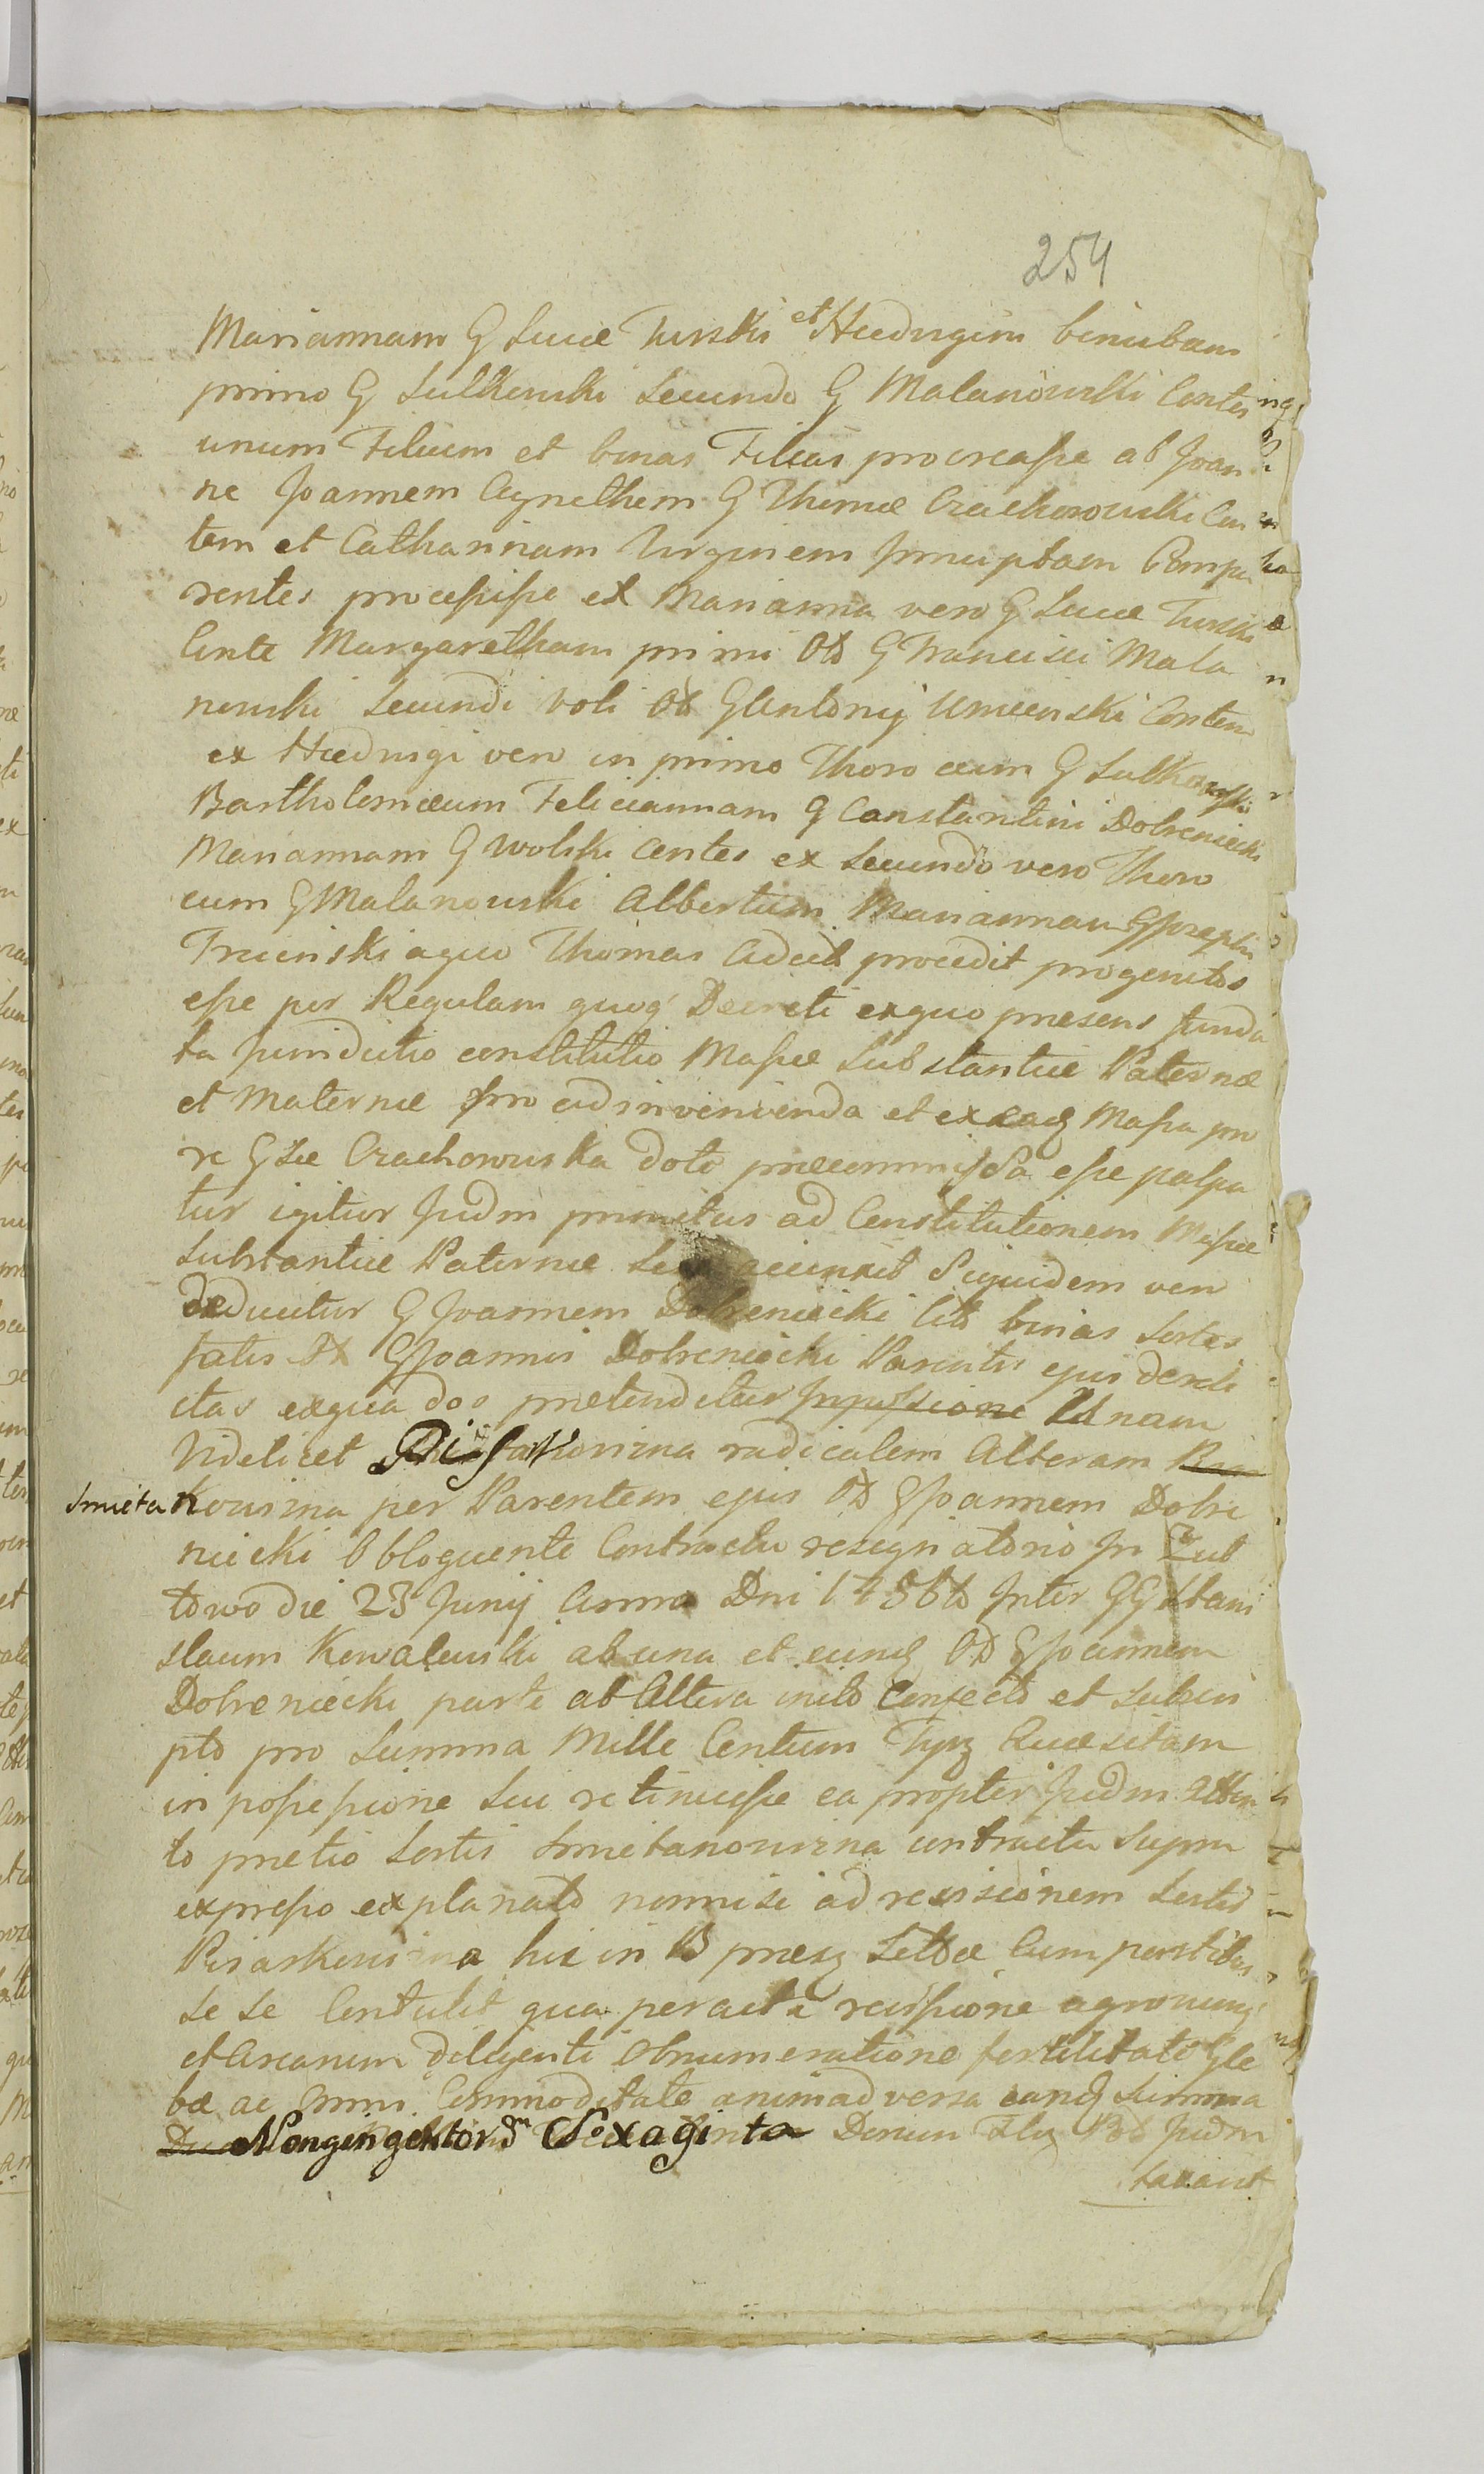 254
Mariannam G Lucæ Turski et Hedvigim binubam
primo G Sulkowski Secundo G Malanowski Contes
unum Filium et binas Filias procreasse ab Joan
ne Joannem Agnethem G Thomæ Crachowski Con
tem et Catharinam Virginem Innuptam Compa
rentes processisse ex Marianna vero G Lucæ Turski
Conte Margaretham primi Oto G Francisci Mala
nowski Secundi voti Oto G Antonij Umieński Contem
ex Hedvigi vero in primo Thoro cum G Sulkowski
Bartholomæum Feliciannam G Constantini Dobreniecki
Mariannam G Wolski Contes ex Secundo vero Thoro
cum G Malanowski Albertum Mariannam G Josephi
aquo Thomas procedit progenitos
esse per Regulam quoq Decreti exquo præsens funda
ta Juridictio constitutio Massæ Substantiæ Paternæ
et Maternæ pro adinvenienda et ex eadq Massa pro
re Gsæ Crachowska dote præcommissa esse
tur igitur Judm primitus ad Constitutionem Massæ
Substantiæ Paternæ Siquidem ven
deducitur G Joannem Dobreniecki binas Sortes
fatis G Joannis Dobreniecki Parentis ejus dereli
ctas exqua dos prætenditur Unam
Videlicet radicalem Alteram
Smieta Kowizna per Parentem ejus Oto G Joannem Dobre
niecki Obloquente Contractu resignatorio In Zut
towo die 23 Junij Anno Dni 1756to Inter GG Stani
slaum Kowalewski ab una et eunq Oto G Joannem
Dobreniecki parte ab Altera inito Confecto et Subscri
pto pro Summa Mille Centum Tyz Quæsitam
in possessione Sui retinuisse ea propter Judm Atten
to pretio Sortis Smietanowizna contractu Supra
expresso explanato nonnisi ad revisionem Sortis
hic in B præs Sittæ Cum partibus
se se Contulit qua peracta revisione agrorumq
et Arearum diligenti Obnumeratione fertilitate Gle
bæ ac omni Commoditate animadversa eanq Summa
Nongingentor Sexaginta Judm
taxavit